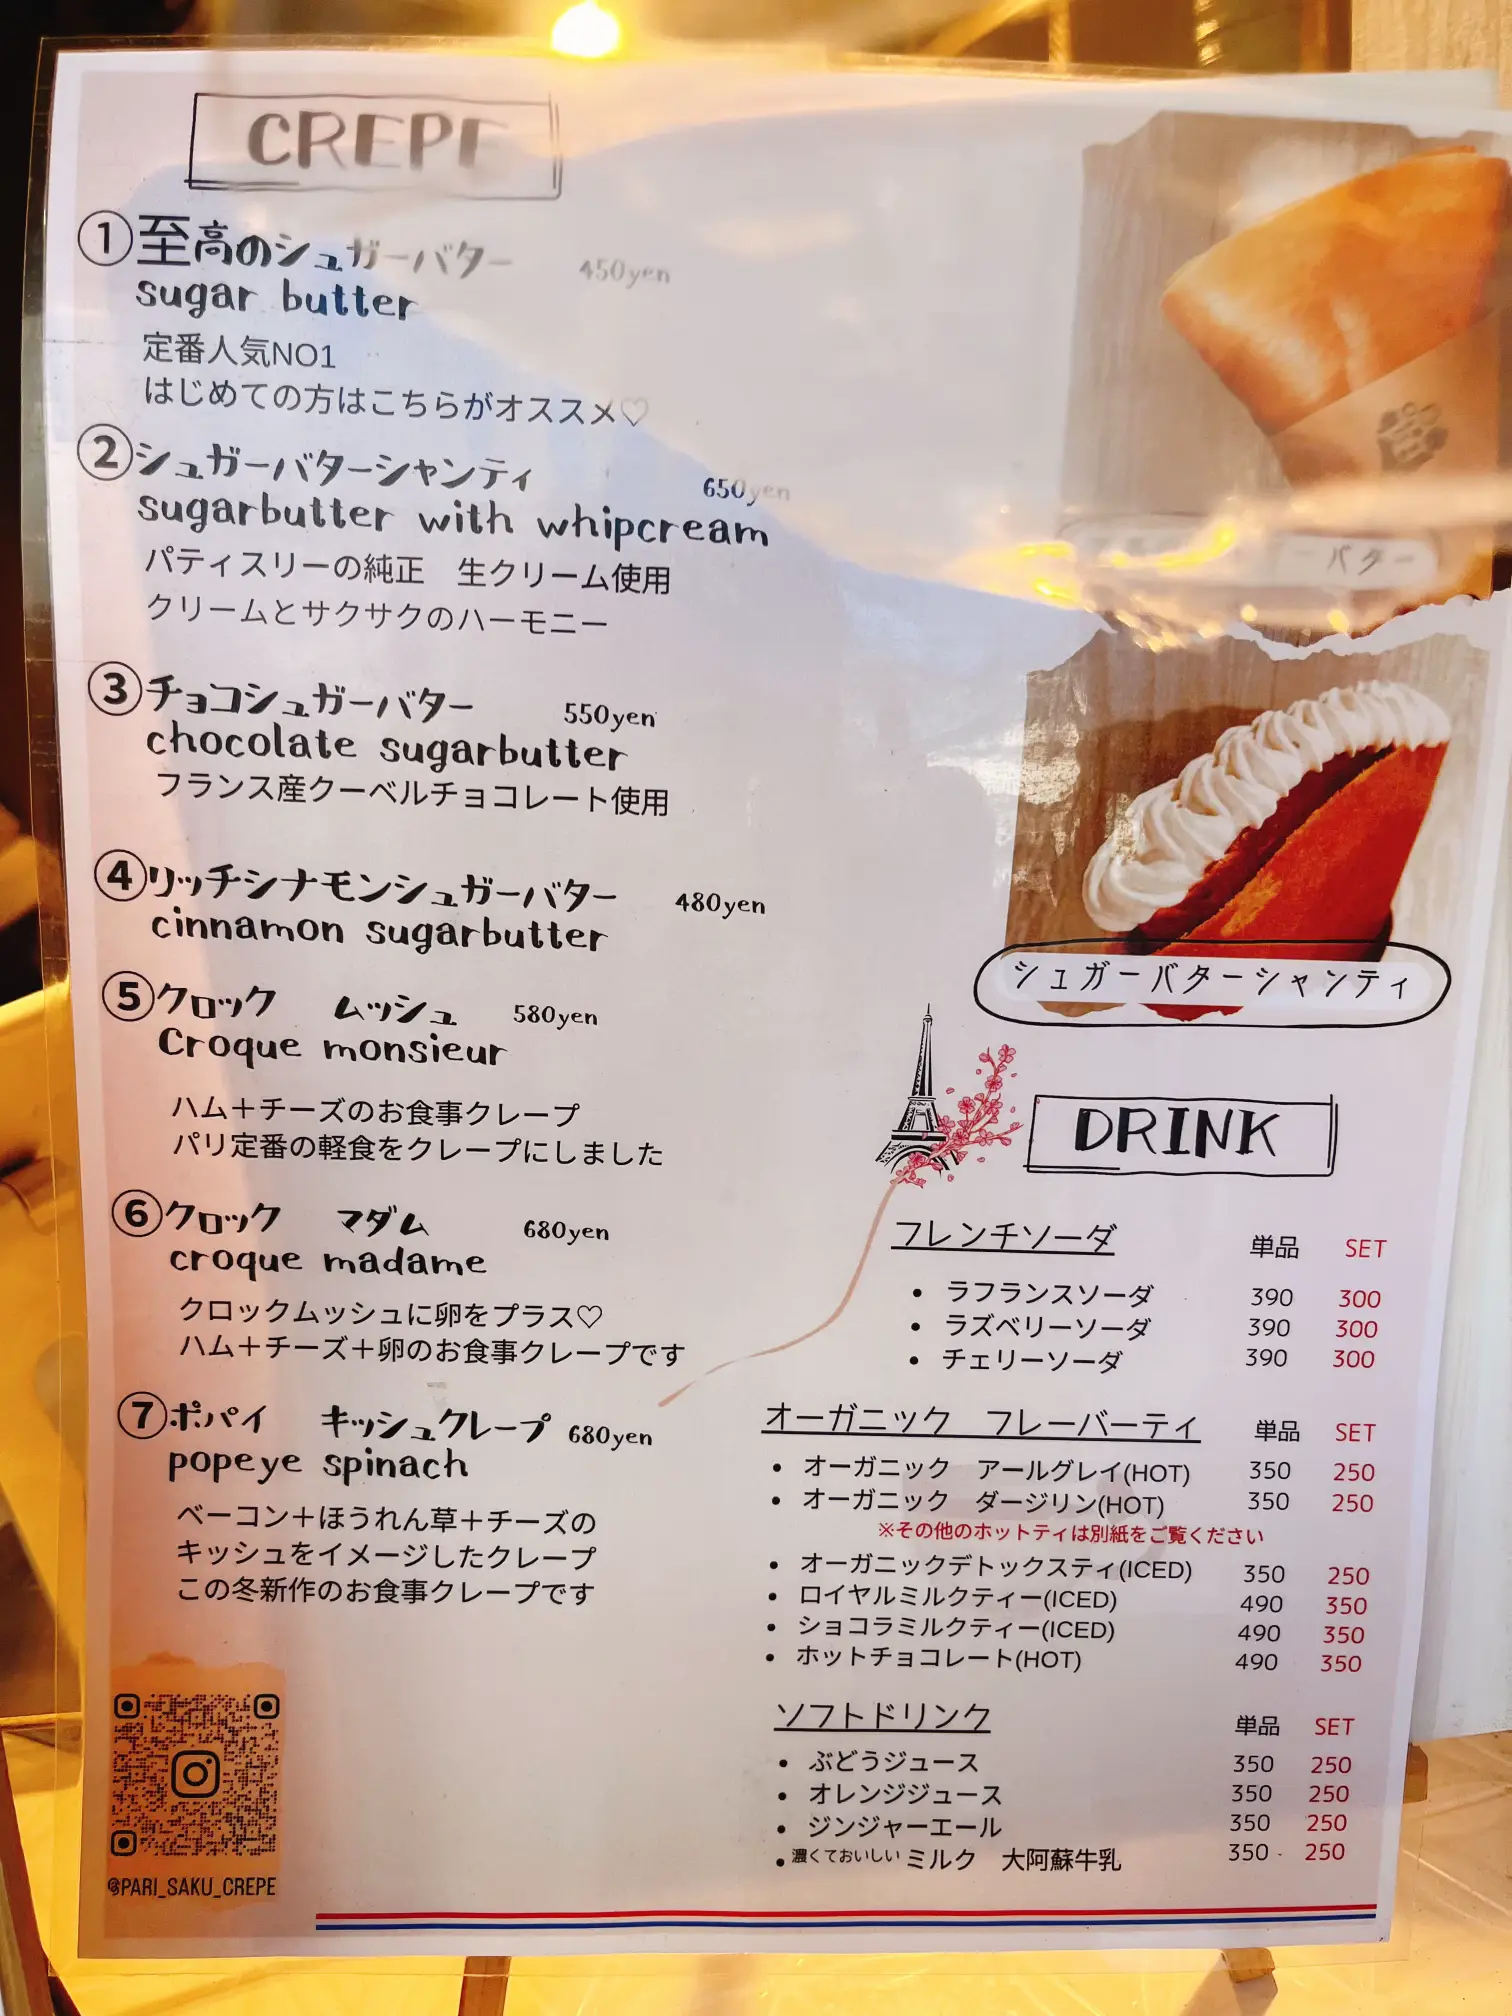 CREPE
①至高のシュガーバター 450yen
sugar butter
定番人気NO1
はじめての方はこちらがオススメ♡
②シュガーバターシャンティ 650yen
sugarbutter with whipcream
パティスリーの純正　生クリーム使用
クリームとサクサクのハーモニー
③チョコシュガーバター 550yen
chocolate sugarbutter
フランス産クーベルチョコレート使用
④リッチシナモンシュガーバター 480yen
cinnamon sugarbutter
⑤クロック　ムッシュ 580yen
Croque monsieur
ハム＋チーズのお食事クレープ
パリ定番の軽食をクレープにしました
⑥クロック　マダム 680yen
croque madame
クロックムッシュに卵をプラス♡
ハム＋チーズ＋卵のお食事クレープです
⑦ポパイ　キッシュクレープ 680yen
popeye spinach
ベーコン＋ほうれん草＋チーズの
キッシュをイメージしたクレープ
この冬新作のお食事クレープです
@PARI_SAKU_CREPE
ーバター
シュガーバターシャンティ
DRINK
フレンチソーダ 単品 SET
・ラフランスソーダ 390 300
・ラズベリーソーダ 390 300
・チェリーソーダ 390 300
オーガニック　フレーバーティ 単品 SET
・オーガニック　アールグレイ(HOT) 350 250
・オーガニック　ダージリン(HOT) 350 250
※その他のホットティは別紙をご覧ください
・オーガニックデトックスティ(ICED) 350 250
・ロイヤルミルクティー(ICED) 490 350
・ショコラミルクティー(ICED) 490 350
・ホットチョコレート(HOT) 490 350
ソフトドリンク 単品 SET
・ぶどうジュース 350 250
・オレンジジュース 350 250
・ジンジャーエール 350 250
・濃くておいしいミルク　大阿蘇牛乳 350 250